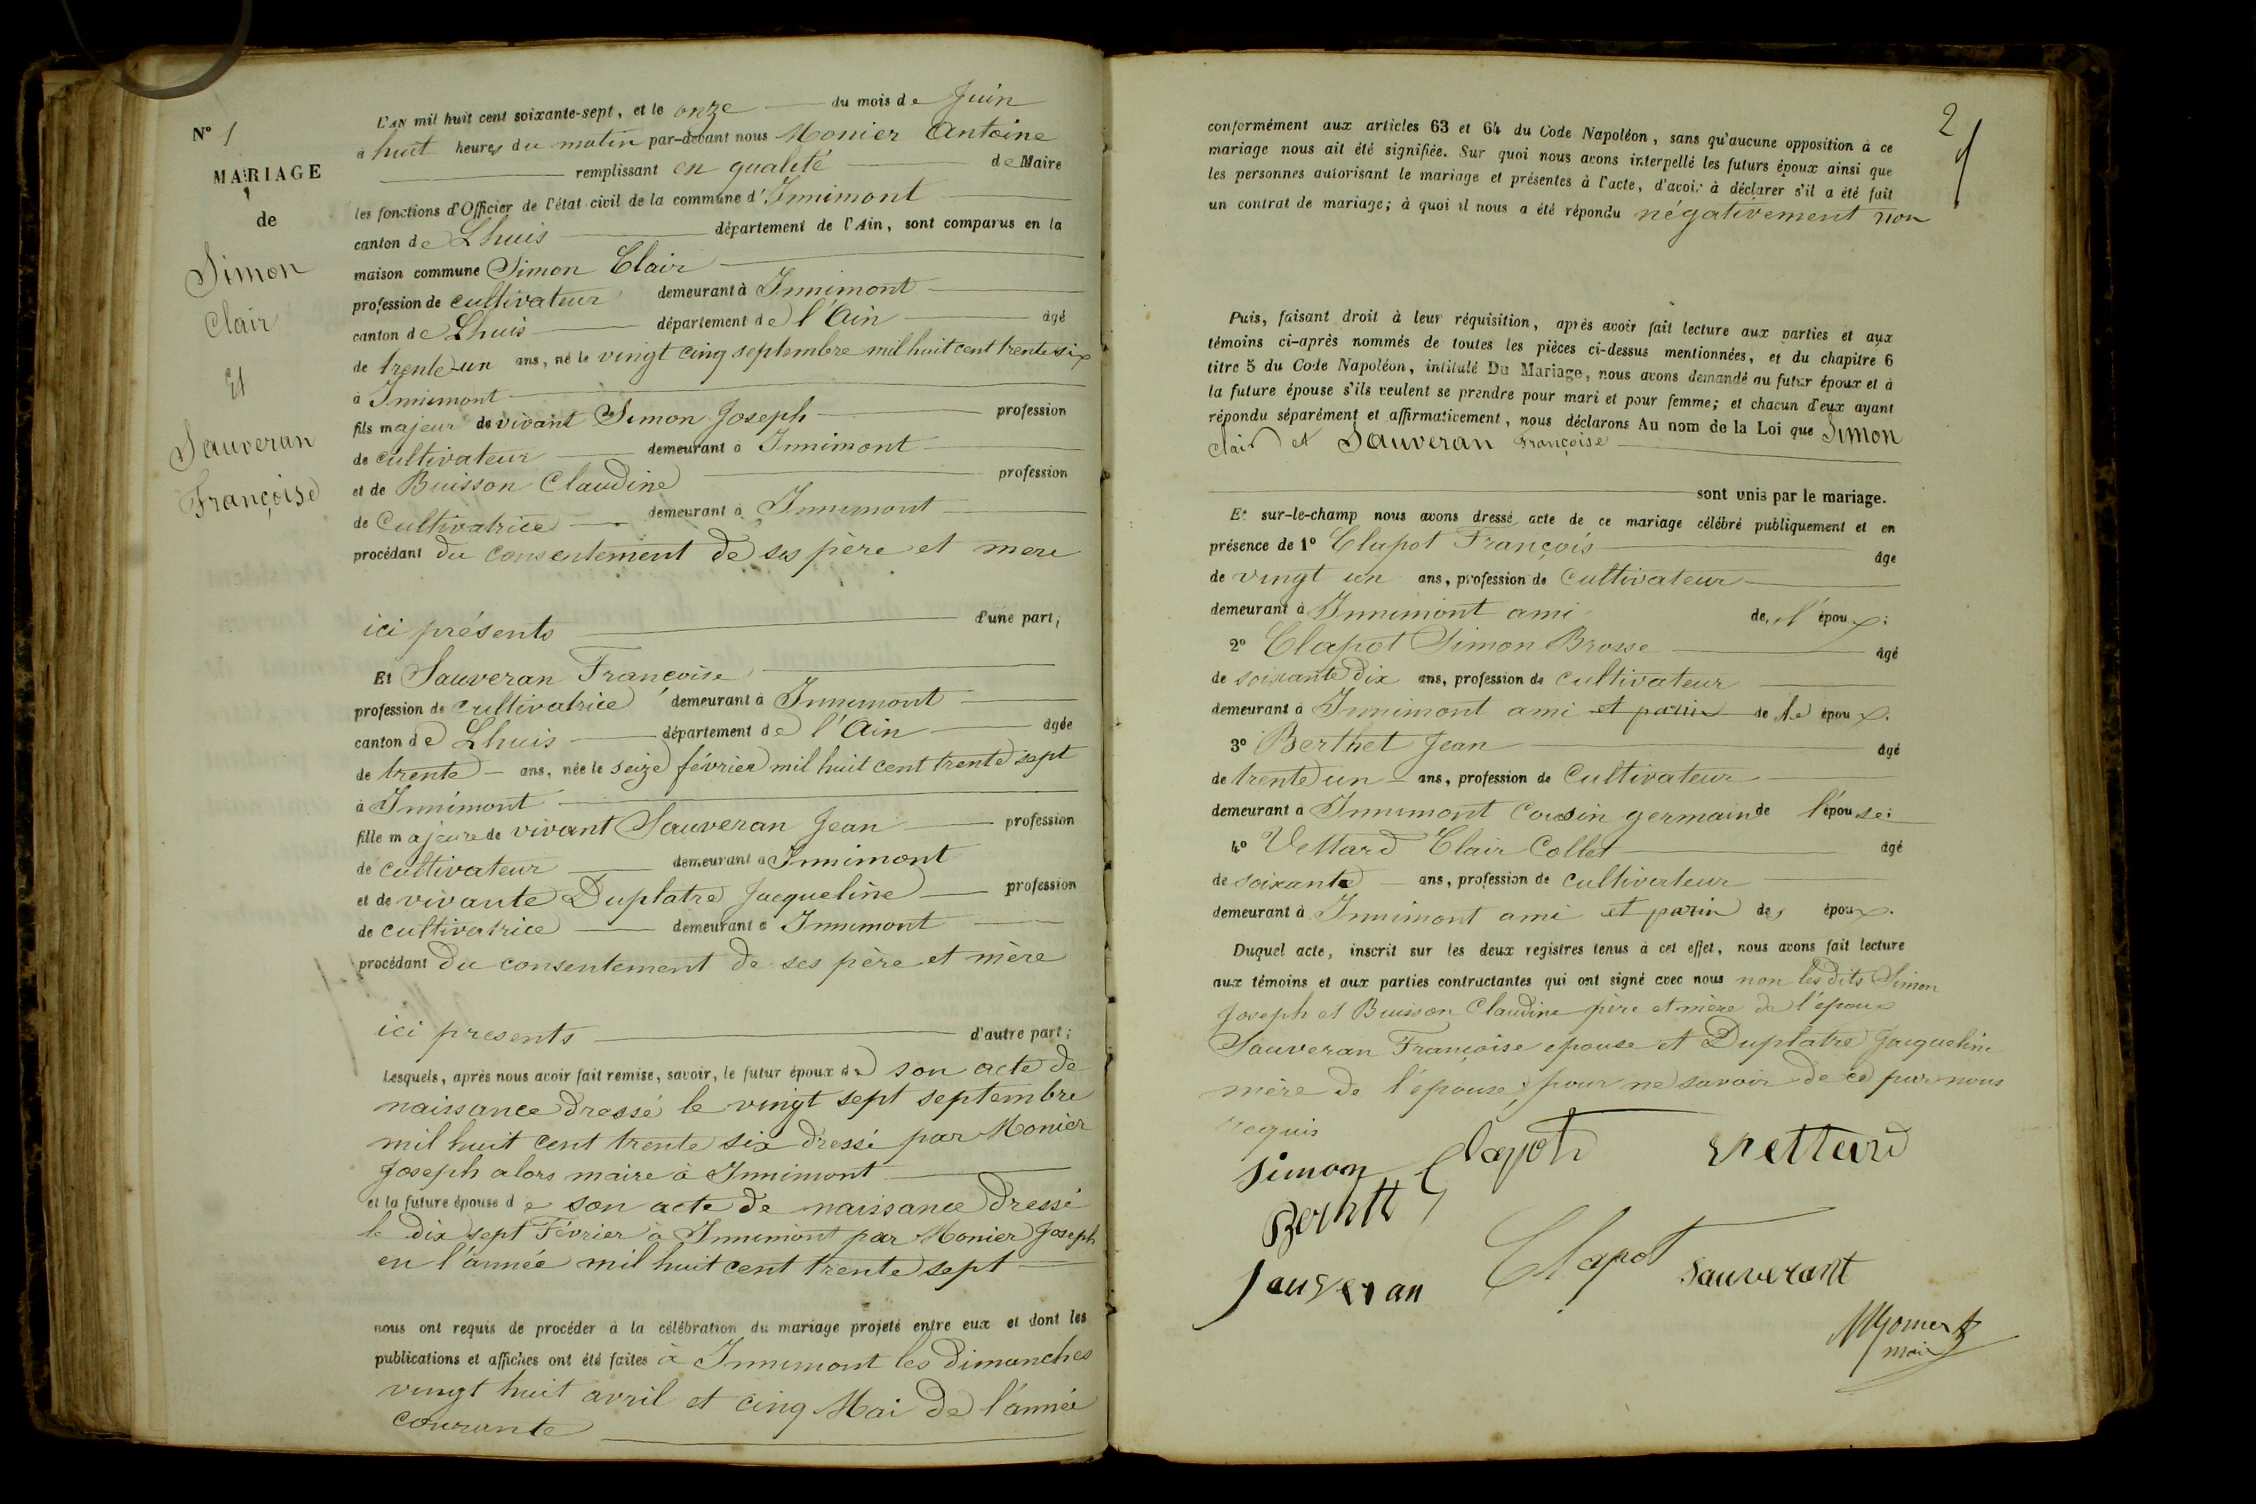 N° 1
MARIAGE
de
Simon
Clair
Et
Sauveran
Françoise
L'AN mil huit cent soixante-sept, et le onze du mois de Juin
à huit heures du matin par-devant nous Monier Antoine
remplissant en qualité de Maire
les fonctions d'Officier de l'état civil de la commune d'Innimont
canton de Lhuis département de l'Ain, sont comparus en la
maison commune Simon Clair
profession de cultivateur demeurant à Innimont
canton de Lhuis département de l'Ain âgé
de trente un ans, né le vingt cinq septembre mil huit cent trente six
à Innimont
fils majeur de vivant Simon Joseph profession
de cultivateur demeurant à Innimont
et de Buisson Claudine profession
de Cultivatrice demeurant à Innimont
procédant du consentement de ses père et mere
ici présents d'une part;
Et Sauveran Françoise
profession de cultivatrice demeurant à Innimont
canton de Lhuis département de l'Ain âgée
de trente ans, née le seize février mil huit cent trente sept
à Innimont
fille majeure de vivant Sauveran Jean profession
de cultivateur demeurant à Innimont
et de vivante Duplatre Jacqueline profession
de cultivatrice demeurant à Innimont
procédant du consentement de ses père et mère
ici presents d'autre part;
Lesquels, après nous avoir fait remise, savoir, le futur époux de son acte de
naissance dressé le vingt sept septembre
mil huit cent trente six dressé par Monier
Joseph alors maire à Innimont
et la future épouse de son acte de naissance dressé
le dix sept Février à Innimont par Monier Joseph
en l'année mil huit cent trente sept
nous ont requis de procéder à la célébration du mariage projeté entre eux et dont les
publications et affiches ont été faites à Innimont les dimanches
vingt huit avril et cinq Mai de l'année
courante
2
conformément aux articles 63 et 64 du Code Napoléon, sans qu'aucune opposition à ce
mariage nous ait été signifiée. Sur quoi nous avons interpellé les futurs époux ainsi que
les personnes autorisant le mariage et présentes à l'acte, d'avoir à déclarer s'il a été fait
un contrat de mariage; à quoi il nous a été répondu négativement non
Puis, faisant droit à leur réquisition, après avoir fait lecture aux parties et aux
témoins ci-après nommés de toutes les pièces ci-dessus mentionnées, et du chapitre 6
titre 5 du Code Napoléon, intitulé Du Mariage, nous avons demandé au futur époux et à
la future épouse s'ils veulent se prendre pour mari et pour femme; et chacun d'eux ayant
répondu séparément et affirmativement, nous déclarons Au nom de la Loi que Simon
Clair et Sauveran Françoise
sont unis par le mariage.
Et sur-le-champ nous avons dressé acte de ce mariage célébré publiquement et en
présence de 1° Clapot François âgé
de vingt un ans, profession de Cultivateur
demeurant à Innimont ami de l'époux;
2° Clapot Simon Brosse âgé
de soixante dix ans, profession de cultivateur
demeurant à Innimont ami et parin de le époux.
3° Berthet Jean âgé
de trente un ans, profession de Cultivateur
demeurant à Innimont cousin germain de l'épouse;
4° Vettard Clair Collet âgé
de soixante ans, profession de cultivateur
demeurant à Innimont ami et parin des époux.
Duquel acte, inscrit sur les deux registres tenus à cet effet, nous avons fait lecture
aux témoins et aux parties contractantes qui ont signé avec nous non les dits Simon
Joseph et Buisson Claudine père et mère de l'époux
Sauveran Françoise epouse et Duplatre Jacqueline
mère de l'épouse, pour ne savoir de ce par nous
requis
Simon Clapot Vettard
Berhtt
Sauveran Clapot Sauverant
Monier
maire